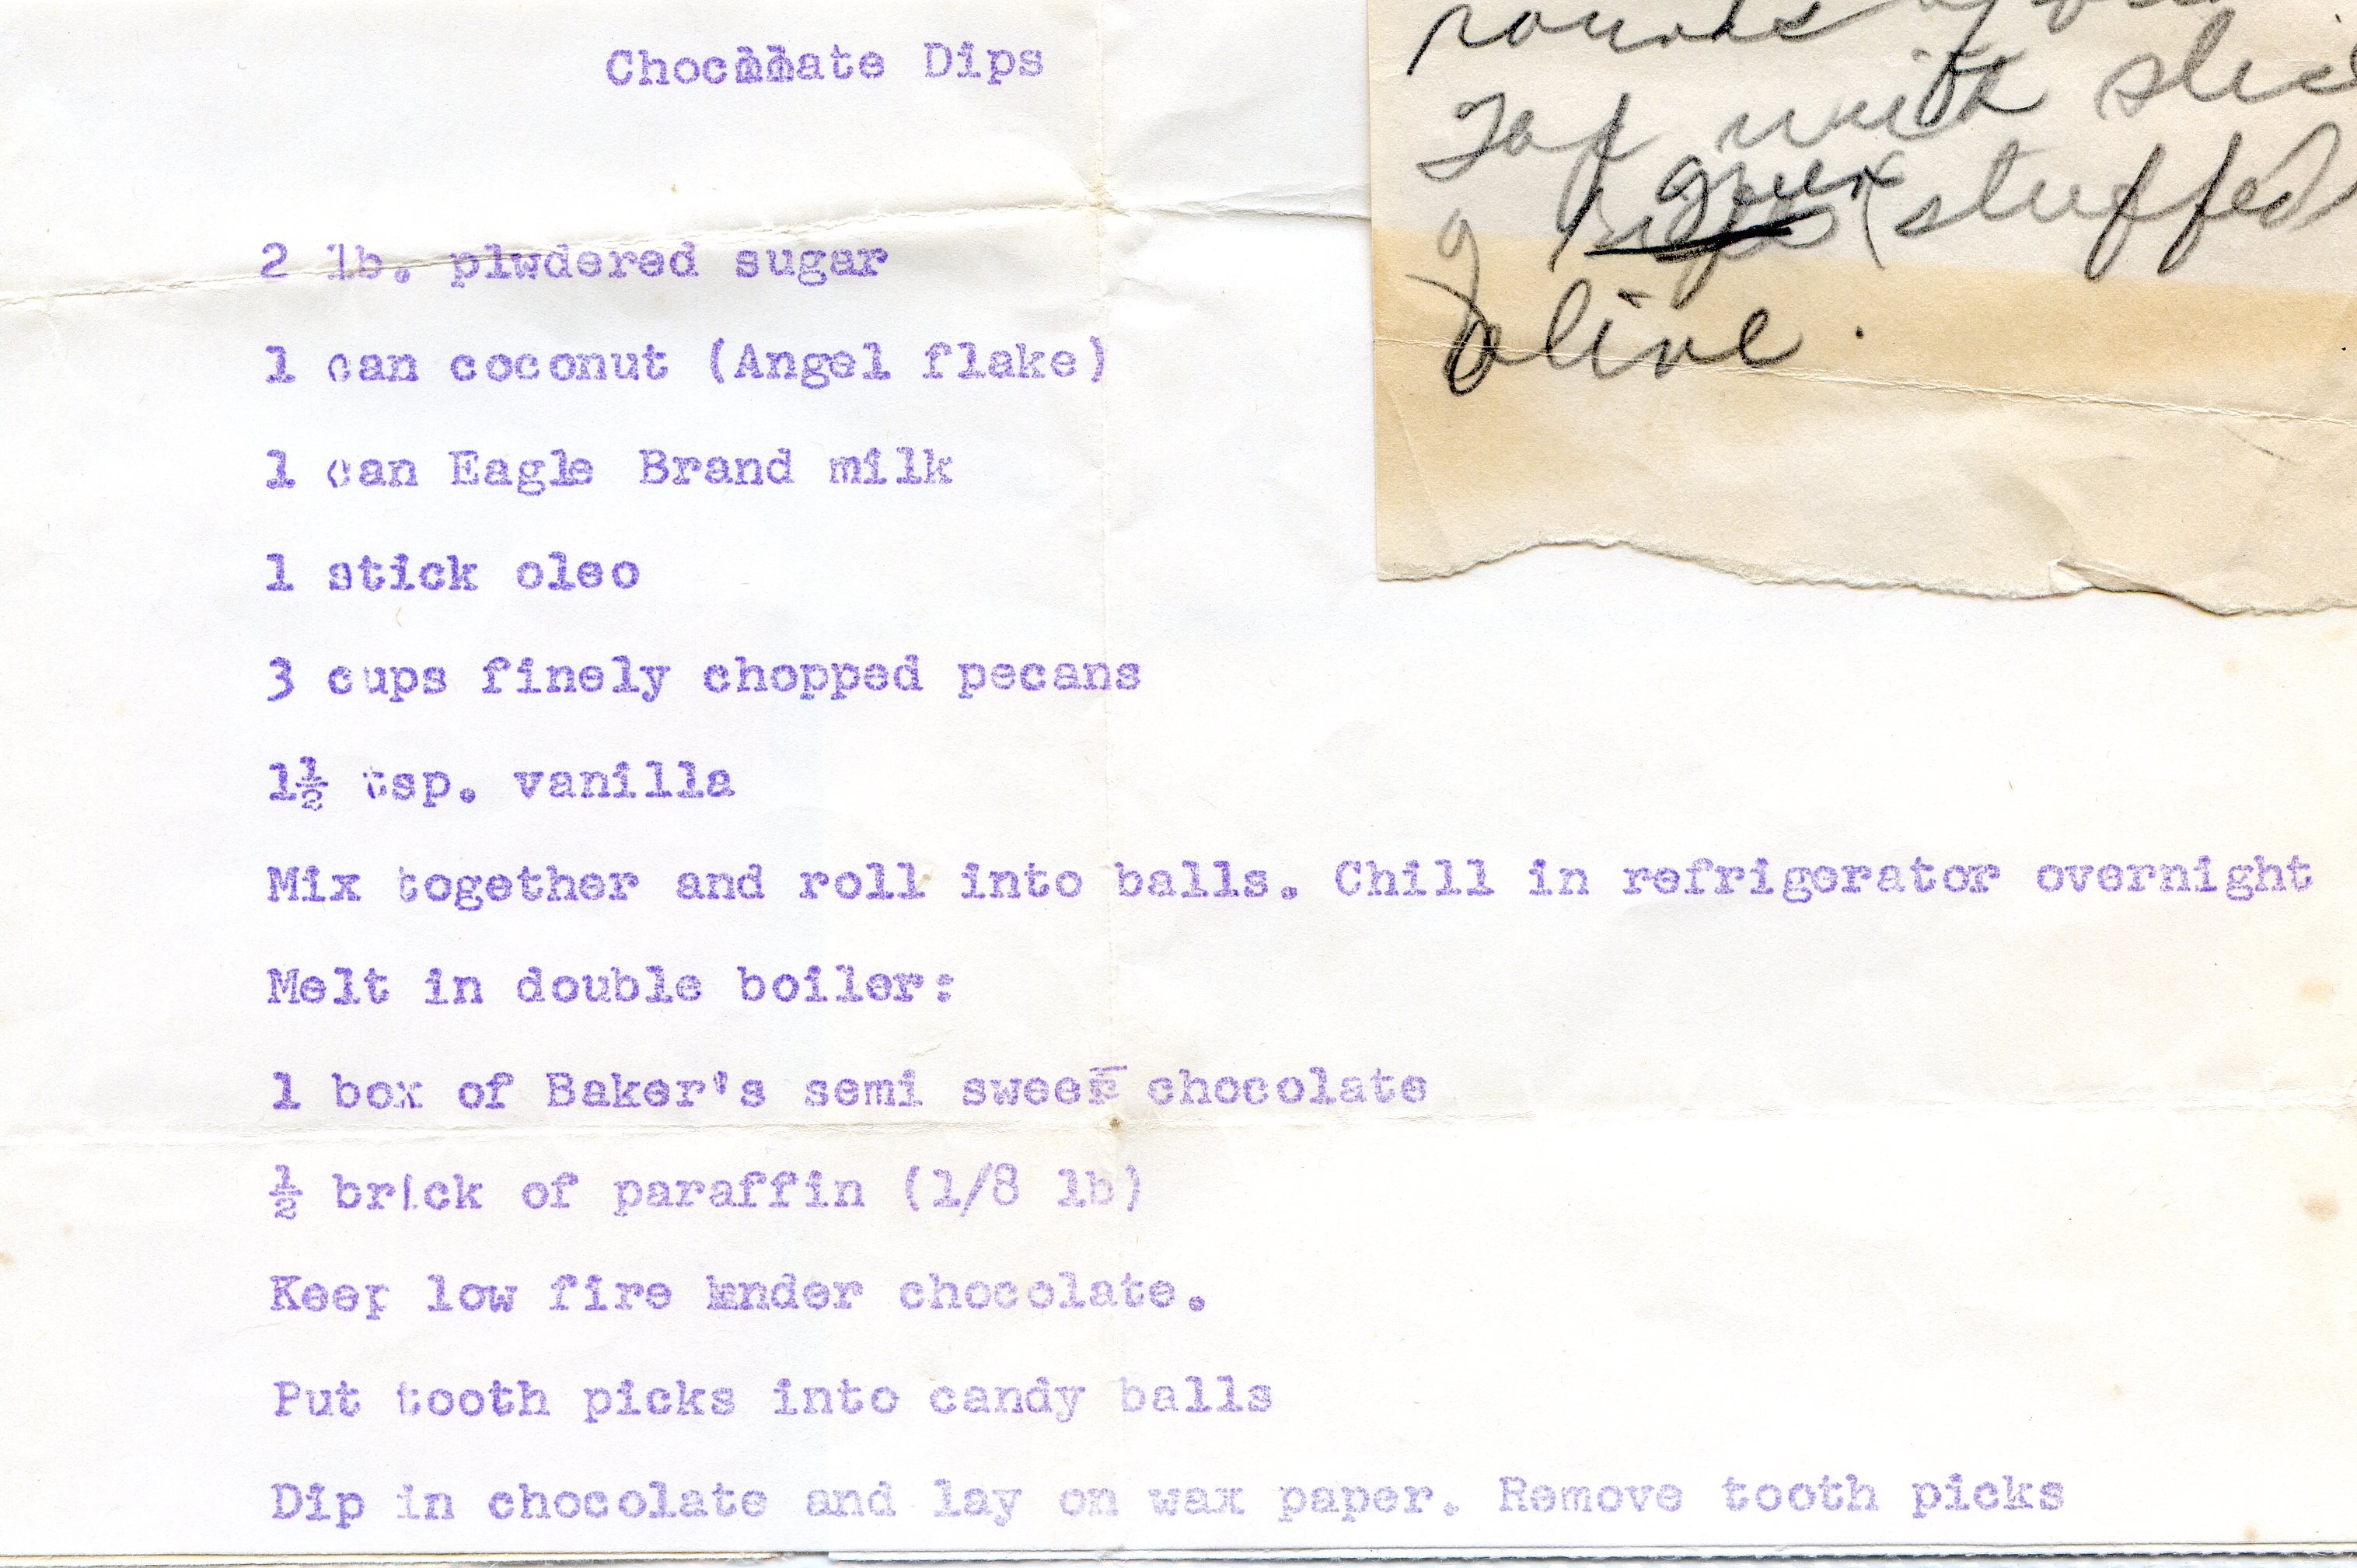 Chocolate Dips
2 lb. plwdered sugar
1 can coconut (Angel flake)
1 can Eagle Brand milk
1 stick oleo
3 cups finely chopped pecans
1½ tsp. vanilla
Mix together and roll into balls. Chill in refrigerator overnight
Melt in double boiler:
1 box of Baker's semi sweet chocolate
½ brick of paraffin (1/8 lb)
Keep low fire under chocolate.
Put tooth picks into candy balls
Dip in chocolate and lay on wax paper. Remove tooth picks
rounds of
Top with slice
green (stuffed)
olive.